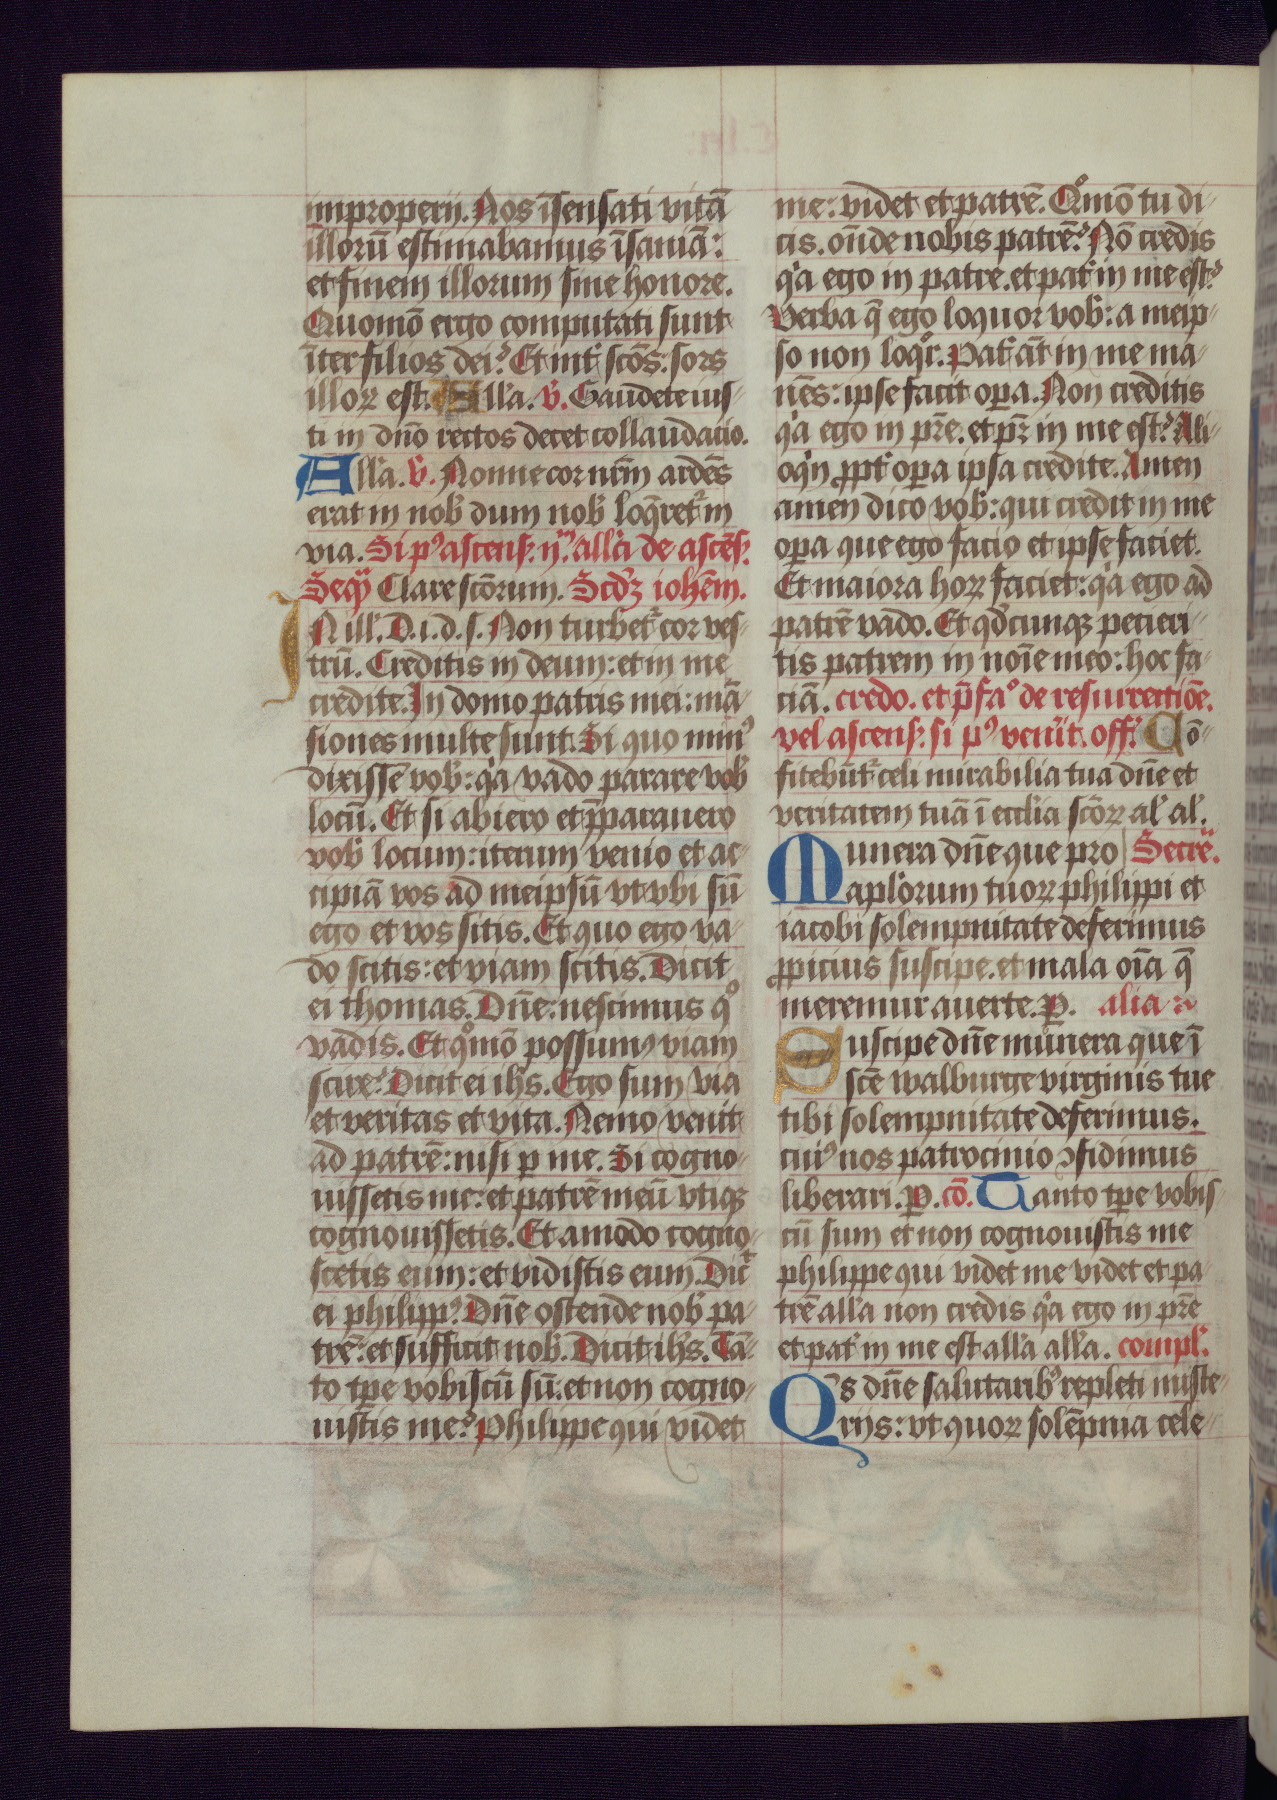 improperij. Nos īsensati vitā
illorū estimabamus īsaniā:
et finem illorum sine honore.
Quomō ergo computati sunt
īter filios dei? Et int̉ scōs: sors
illoꝝ est. Alľa. ℣. Gaudete ius⸗
ti in dn̄o rectos decet collaudatio.
Alľa. ℣. Nonne cor nr̄m ardēs
erat in nob̉ dum nob̉ loq̄ret᷑ in
via. Si pꝰ ascens̉. ij.ᵐ all̉a de ascēs̉.
Seqͣ Clare scōrum. Scd̉ꝫ ioh̄em.
IN ill̉. D. i. d. s. Non turbet᷑ cor ves⸗
trū. Creditis in deum: et in me
credite. In domo patris mei: mā⸗
siones multe sunt. Si quo minꝰ
dixissē vob̉: qͥa vado parare vob̉
locū. Et si abiero et p̄parauero
vob̉ locum: iterum venio et ac⸗
cipiā vos ad meipsū vt vbi sū
ego et vos sitis. Et quo ego va⸗
do scitis: et viam scitis. Dicit
ei thomas. Dn̄e: nescimus qͦ
vadis. Et qͦmō possumꝰ viam
scire? Dicit ei ih̄s. Ego sum via
et veritas et vita. Nemo venit
ad patrē: nisi ꝑ me. Si cogno⸗
uissetis me: et patrē meū vtiqꝫ
cognouissetis. Et amodo cogno⸗
scetis eum: et vidistis eum. Dic̄
ei philippꝰ. Dn̄e ostende nob̉ pa⸗
trē: et sufficit nob̉. Dicit ih̄s. Tā⸗
to tp̄e vobiscū sū: et non cogno⸗
uistis me? Philippe qui videt
me: videt et patrē. Qͦmō tu di⸗
cis. on̄de nobis patrē? Nō credis
qͥa ego in patre. et pat̉ in me est?
Verba q̄ ego loquor vob̉: a meip⸗
so non loqͦr. Pat̉ aūt in me ma⸗
nēs: ipse facit oꝑa. Non creditis
qͥa ego in pr̄e. et pr̄ in me est? Ali⸗
oqͥn ꝓpt̉ oꝑa ipsa credite. Amen
amen dico vob̉: qui credit in me
oꝑa que ego facio et ipse faciet.
Et maiora hoꝝ faciet: qͥa ego ad
patrē vado. Et qd̉cunqꝫ pecieri⸗
tis patrem in noīe meo: hoc fa⸗
ciā. credo. et p̄faͦ de resurrectiōe.
vel ascens̉. si pꝰ venīt. off̉. Cō⸗
fitebūt᷑ celi mirabilia tua dn̄e et
veritatem tuā ī eccl̉ia scōꝝ al̉ al̉.
Munera dn̄e que pro Secrē.
apl̉orum tuoꝝ philippi et
iacobi solempnitate deferimus
ꝓpicius suscipe. et mala oīa q̄
meremur auerte. ꝑ. alia
Suscipe dn̄e munera que ī
scē walburge virginis tue
tibi solempnitate deferimus.
cuiꝰ nos patrocinio ꝯfidimus
liberari. ꝑ. cō. Tanto tp̄e vobis
cū sum et non cognouistis me
philippe qui videt me videt et pa⸗
trē all̉a non credis qͥa ego in pr̄e
et pat̉ in me est all̉a all̉a. compl̉.
Qs̄ dn̄e salutaribꝰ repleti miste⸗
rijs: vt quoꝝ solēpnia cele⸗